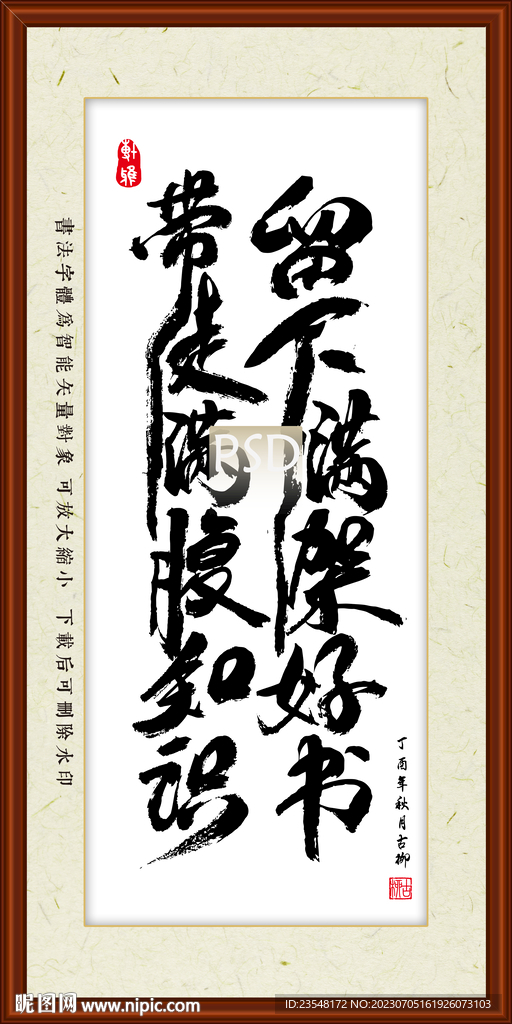 留下满架好书
带走满腹知识
丁酉年秋月古柳
軒雅
書法字體為智能矢量對象 可放大縮小 下載后可刪除水印
PSD
昵图网 www.nipic.com
ID:23548172 NO:20230705161926073103